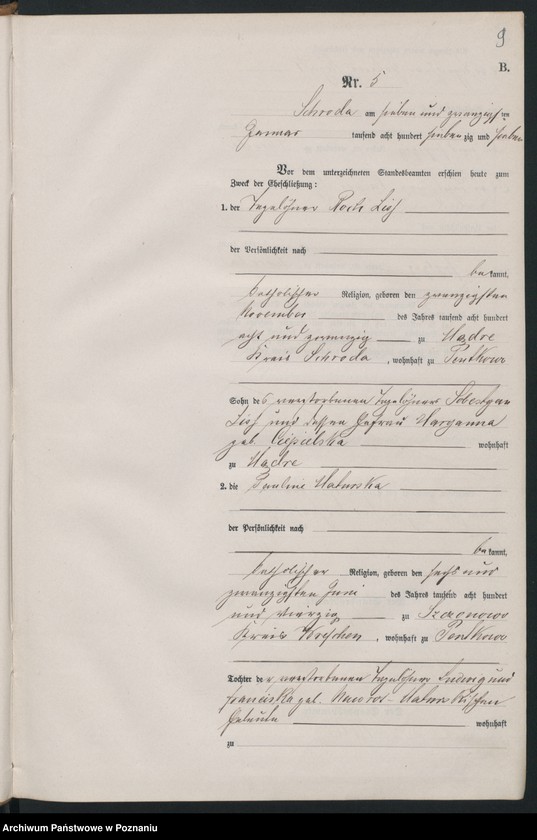 9
B.
Nr. 5
Schroda am sieben und zwanzigsten
Januar tausend acht hundert siebenzig und sieben
Vor dem unterzeichneten Standesbeamten erschien heute zum
Zweck der Eheschließung:
1. der Tagelöhner Roch Lis
der Persönlichkeit nach
bekannt,
katholischer Religion, geboren den zwanzigsten
November des Jahres tausend acht hundert
acht und zwanzig zu Mądre
Kreis Schroda, wohnhaft zu Pentkowo
Sohn des verstorbenen Tagelöhners
Lis und dessen Ehefrau Maryanna
geb. wohnhaft
zu Mądre
2. die Pauline Matuska
der Persönlichkeit nach
bekannt,
katholischer Religion, geboren den sechs und
zwanzigsten Juni des Jahres tausend acht hundert
und vierzig zu
Kreis Wreschen, wohnhaft zu Pentkowo
Tochter der verstorbenen Tagelöhner Ludwig und
Franciska geb.
Eheleute wohnhaft
zu
Archiwum Państwowe w Poznaniu